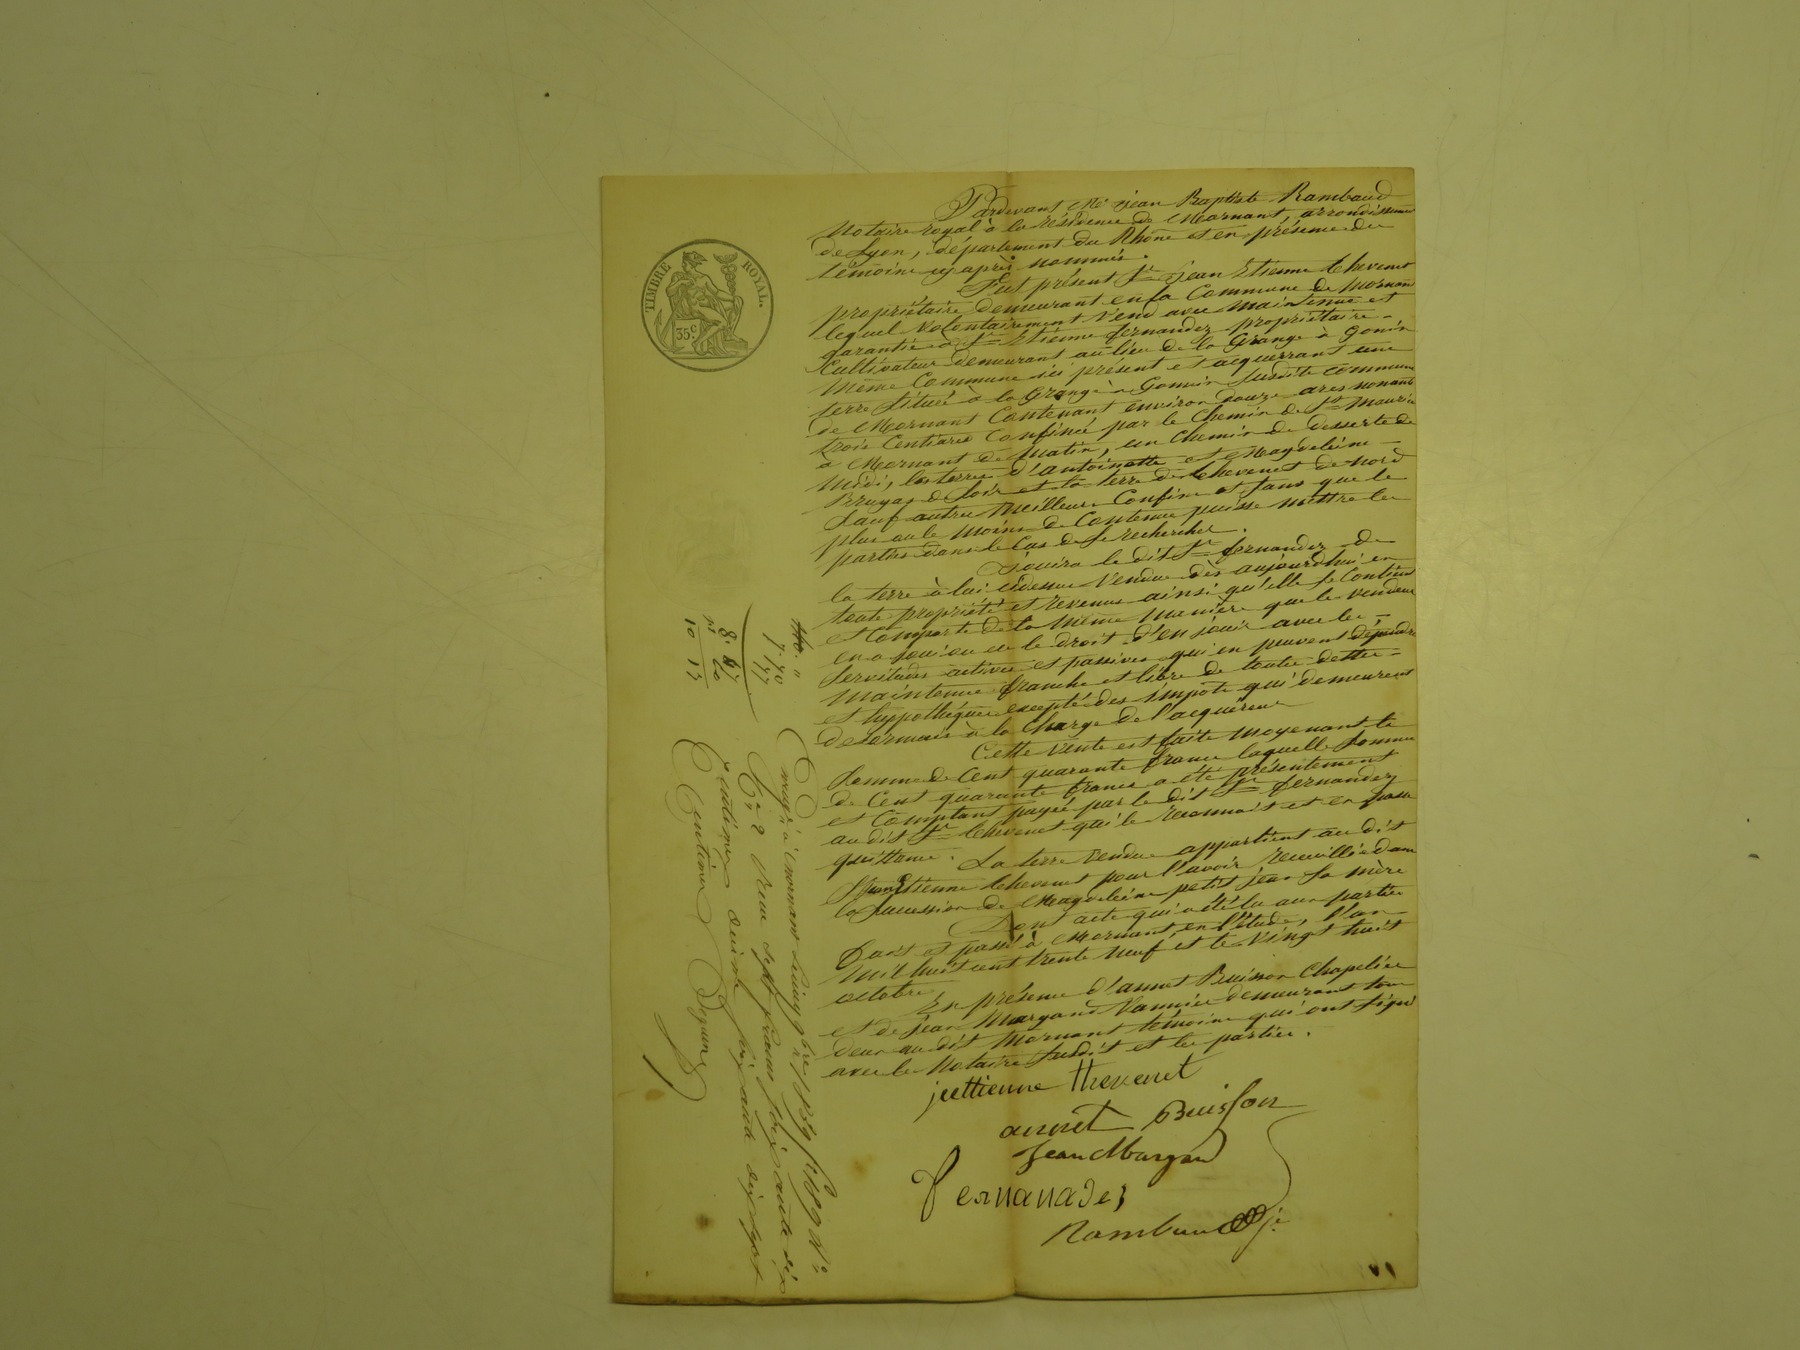 TIMBRE ROYAL.
35c.
Pardevant Me Jean Baptiste Rambaud
Notaire royal à la résidence de Mornant, arrondissement
de Lyon, département du Rhône et en présence des
témoins cy après nommés.
Fut présent Sr Jean Etienne thevenet
propriétaire demeurant en la Commune de Mornant
lequel Volontairement Vend avec maintenue et
garantie à Sr Etienne fernandez propriétaire
Cultivateur demeurant au lieu de la Grange à Gonin
même Commune ici présent et acquerrant une
terre située à la Grange à Gonnin susdite commune
de Mornant Contenant environ douze ares nonante
trois Centiares Confinée par le Chemin de St Maurice
à Mornant de matin, un Chemin de desserte de
midi, les terres d'antoinette et Magdeleine
Bruyas de soir et la terre de thevenet de nord
sauf autres meilleurs Confins et sans que le
plus ou le moins de Contenue puisse mettre les
parties dans le Cas de se rechercher.
Jouira le dit Sr fernandez de
la terre à lui cidessus Vendue dès aujourdhui en
toute propriété et revenus ainsi qu'elle se Contient
et Comporte de la même manière que le vendeur
en a joui ou eu le droit d'en jouir avec les
servitudes actives et passives qui en peuvent dépendre
maintenue franche et libre de toutes dettes
et hypothèques excepté des impots qui demeurent
desormais à la Charge de l'acquéreur
Cette Vente est faite moyenant la
somme de Cent quarante francs laquelle somme
de Cent quarante francs a été présentement
et Comptant payée par le dit Sr fernandez
au dit Sr thevenet qui le reconnait et en passe
quittance. La terre Vendue appartient au dit
Jean Etienne thevenet pour l'avoir recueillie dans
la succession de Magdeleine petit jean sa mère
Dont acte qui a été lu aux parties
Fait et passé à Mornant, en l'Etude, l'an
mil huit cent trente neuf et le Vingt huit
octobre,
En présence d'annet Buisson Chapelier
et de Jean Margand Vannier demeurant tous
deux au dit Mornant témoins qui ont signé
avec le Notaire susdit et les parties.
jeettienne thevenet
annet Buisson
Jean Margan
fernanades
Rambaud
140. "
7. 70
77
8. 47
1. 20
10 17
Enregé à Mornant le
Reçu sept francs soixante dix
centimes
Centimes